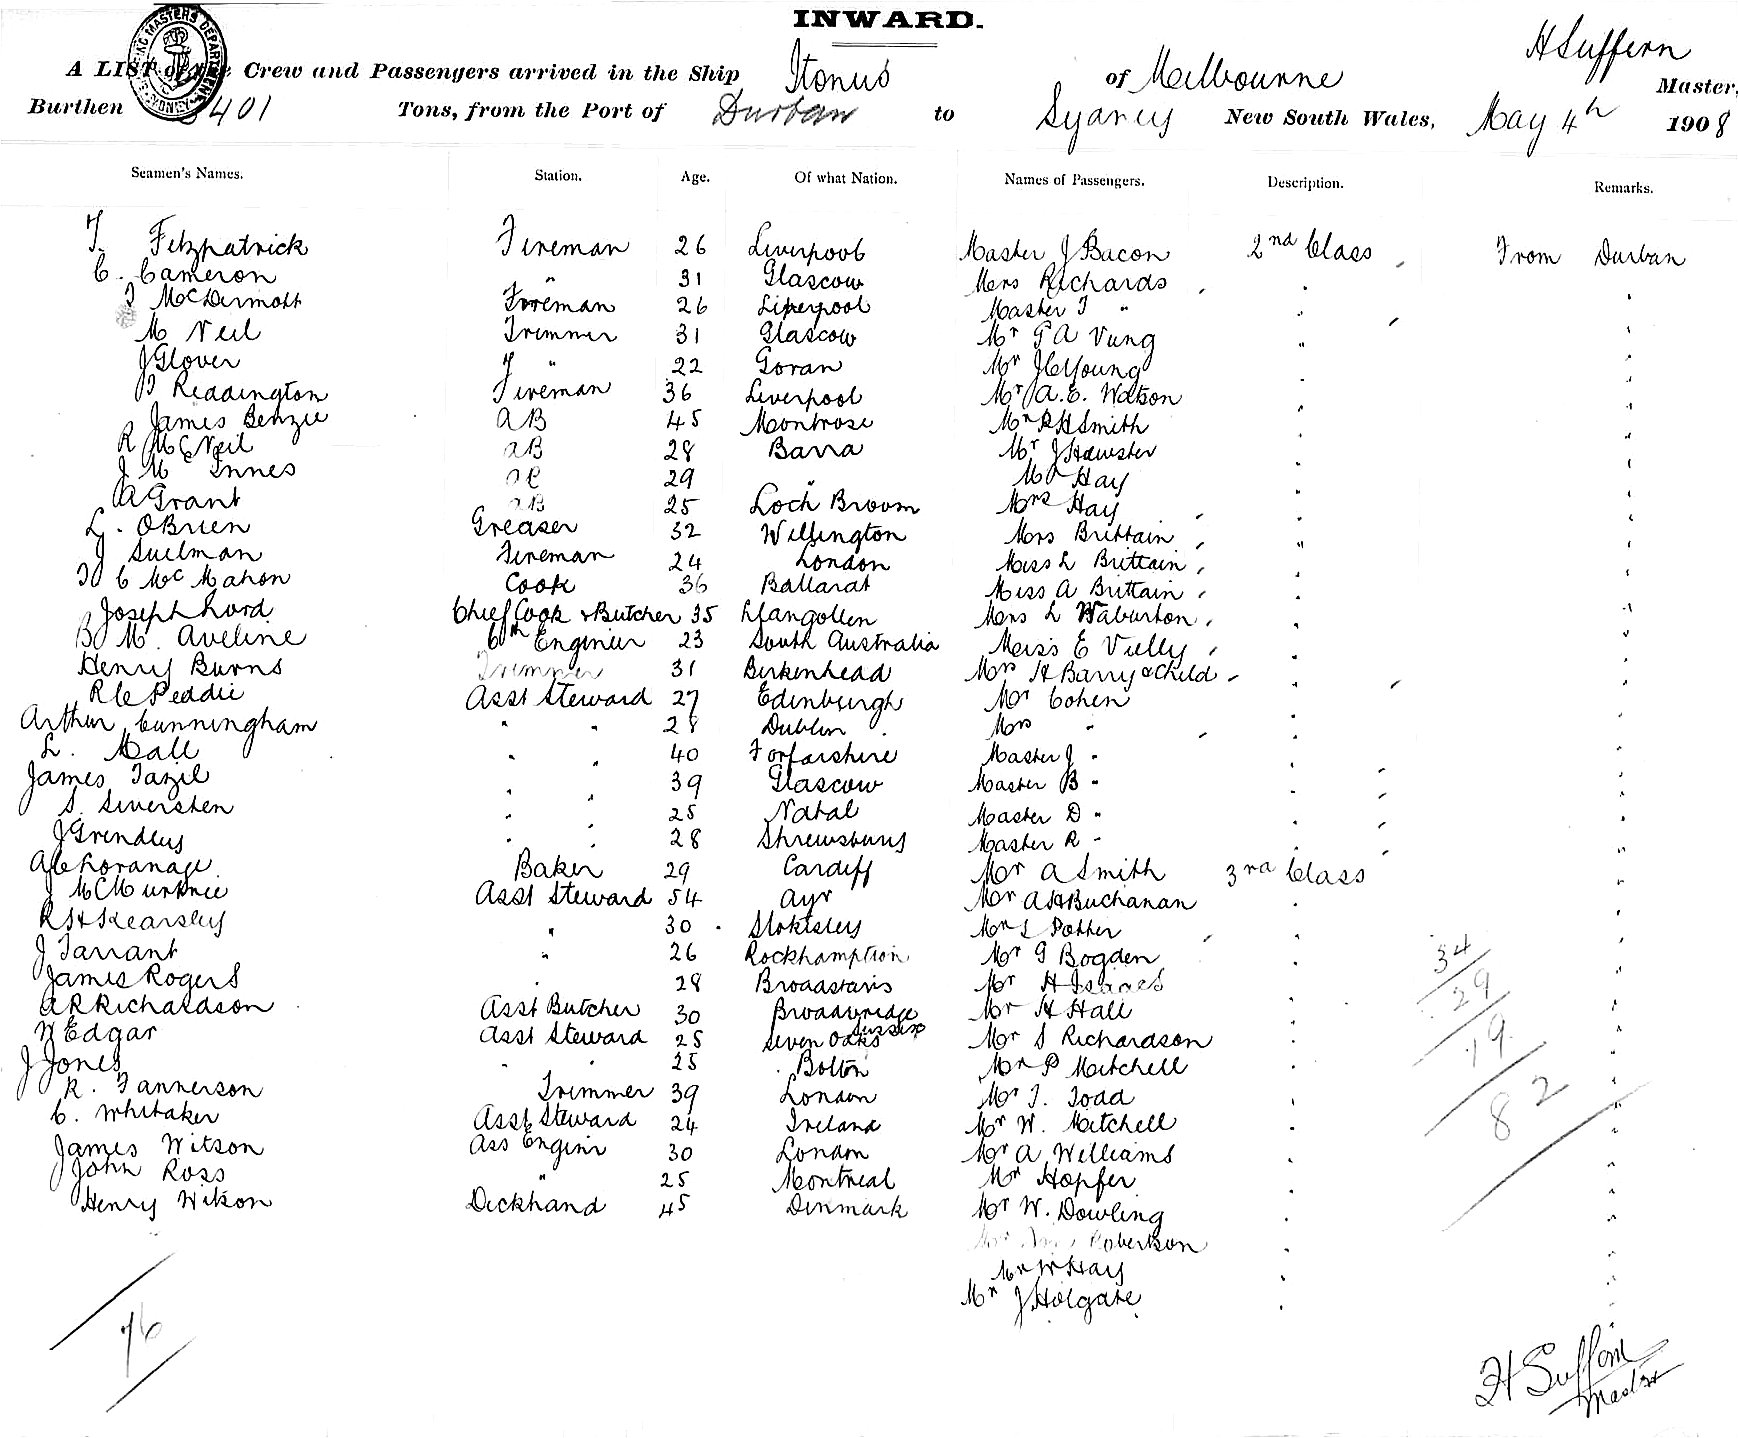 INWARD.
H Suffern
A LIST of the Crew and Passengers arrived in the Ship Itonus of Melbourne Master,
Burthen 401 Tons, from the Port of Durban to Sydney New South Wales, May 4th 1908
Seamen's Names. Station. Age. Of what Nation. Names of Passengers. Description. Remarks.
T. Fitzpatrick Fireman 26 Liverpool Master J Bacon 2nd Class From Durban
C. Cameron " 31 Glascow Mrs Richards "
J McDermott Foreman 26 Liverpool Master J " "
M Neil Trimmer 31 Glascow Mr G A Vung "
J Glover " 22 Goran Mr J C Young "
J Reddington Fireman 36 Liverpool Mr A. E. Watson "
James Benzie AB 45 Montrose Mr R H Smith "
R McNeil AB 28 Barra Mr J Hewster "
J McInnes AB 29 " Mr Hay "
A Grant AB 25 Loch Broom Mrs Hay "
L. OBrien Greaser 32 Wellington Mrs Brittain "
J Suelman Fireman 24 London Miss L Brittain "
C McMahon Cook 36 Ballarat Miss A Brittain "
Joseph Lord Chief Cook & Butcher 35 Llangollen Mrs L Waburton "
B M. Aveline 6th Engineer 23 South Australia Miss E Vielly "
Henry Burns Trimmer 31 Birkenhead Mrs H Barry & Child "
R C Peddie Asst Steward 27 Edinburgh Mr Cohen "
Arthur Cunningham " " 28 Dublin Mrs " "
L. Mall " " 40 Forfarshire Master J " "
James Tazil " " 39 Glascow Master B " "
S. Siversten " " 25 Natal Master D " "
J Grendley " " 28 Shrewsbury Master R " "
A C Choranage Baker 29 Cardiff Mr A Smith 3rd Class "
J McMurtrie Asst Steward 54 Ayr Mr A H Buchanan "
R H Kearsley " 30 Stokisley Mrs Potter "
J Tarrant " 26 Rockhampton Mr G Bogden "
James Rogers " 28 Broadstairs Mr H Isaacs "
A R Richardson Asst Butcher 30 Broadbridge Sussex Mr H Hall "
W Edgar Asst Steward 25 Seven Oaks Mr S Richardson "
J Jones " 25 Bolton Mr P Mitchell "
R. Tannerson Trimmer 39 London Mr J. Todd "
C. Whitaker Asst Steward 24 Ireland Mr W. Mitchell "
James Witson Ass Engini 30 London Mr A Williams "
John Ross " 25 Montreal Mr Hopfer "
Henry Wilson Deckhand 45 Denmark Mr W. Dowling "
Robertson "
Mr W Hay "
Mr J Holgate "
34
29
19
82
76
H Suffern
Master